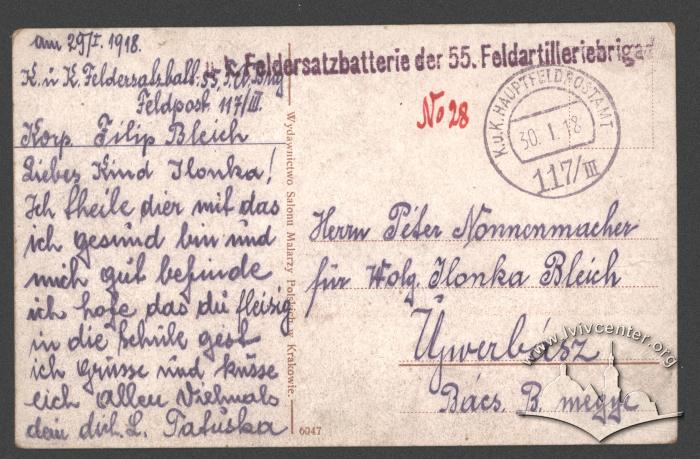 am 29/I. 1918.
K. u K. Feldersatzbatt. 55. F.A. Brig
Feldpost 117/III.
Korp. Filip Bleich
Liebes Kind Ilonka!
Ich theile dier mit das
ich gesund bin und
mich gut befinde
ich hofe das du fleisig
in die Schule gest
ich Grüsse und küsse
eich allen Vielmals
dein dich. L. Tatuska
u. k. Feldersatzbatterie der 55. Feldartilleriebrigad
No 28
K.u.K. HAUPTFELDPOSTAMT
30. I. 18
117/III
Wydawnictwo Salonu Malarzy Polskich w Krakowie.
6047
Herrn Péter Nonnenmacher
für Wolg. Ilonka Bleich
Újwerbász
Bács. B. megye
www.lvivcenter.org